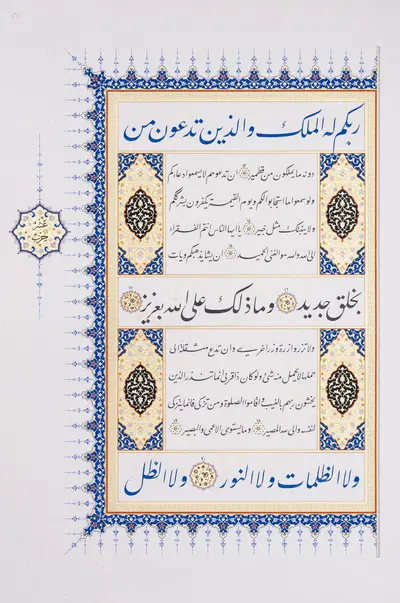 ربکم له الملک والذین تدعون من
دونه ما یملکون من قطمیر ان تدعوهم لا یسمعوا دعاءکم
ولو سمعوا ما استجابوا لکم ویوم القیمة یکفرون بشرککم
ولا ینبئک مثل خبیر یا ایها الناس انتم الفقراء
الی الله والله هو الغنی الحمید ان یشا یذهبکم ویات
بخلق جدید وما ذلک علی الله بعزیز
ولا تزر وازرة وزر اخری وان تدع مثقلة الی
حملها لا یحمل منه شیء ولو کان ذا قربی انما تنذر الذین
یخشون ربهم بالغیب واقاموا الصلوة ومن تزکی فانما یتزکی
لنفسه والی الله المصیر وما یستوی الاعمی والبصیر
ولا الظلمات ولا النور ولا الظل
حزب